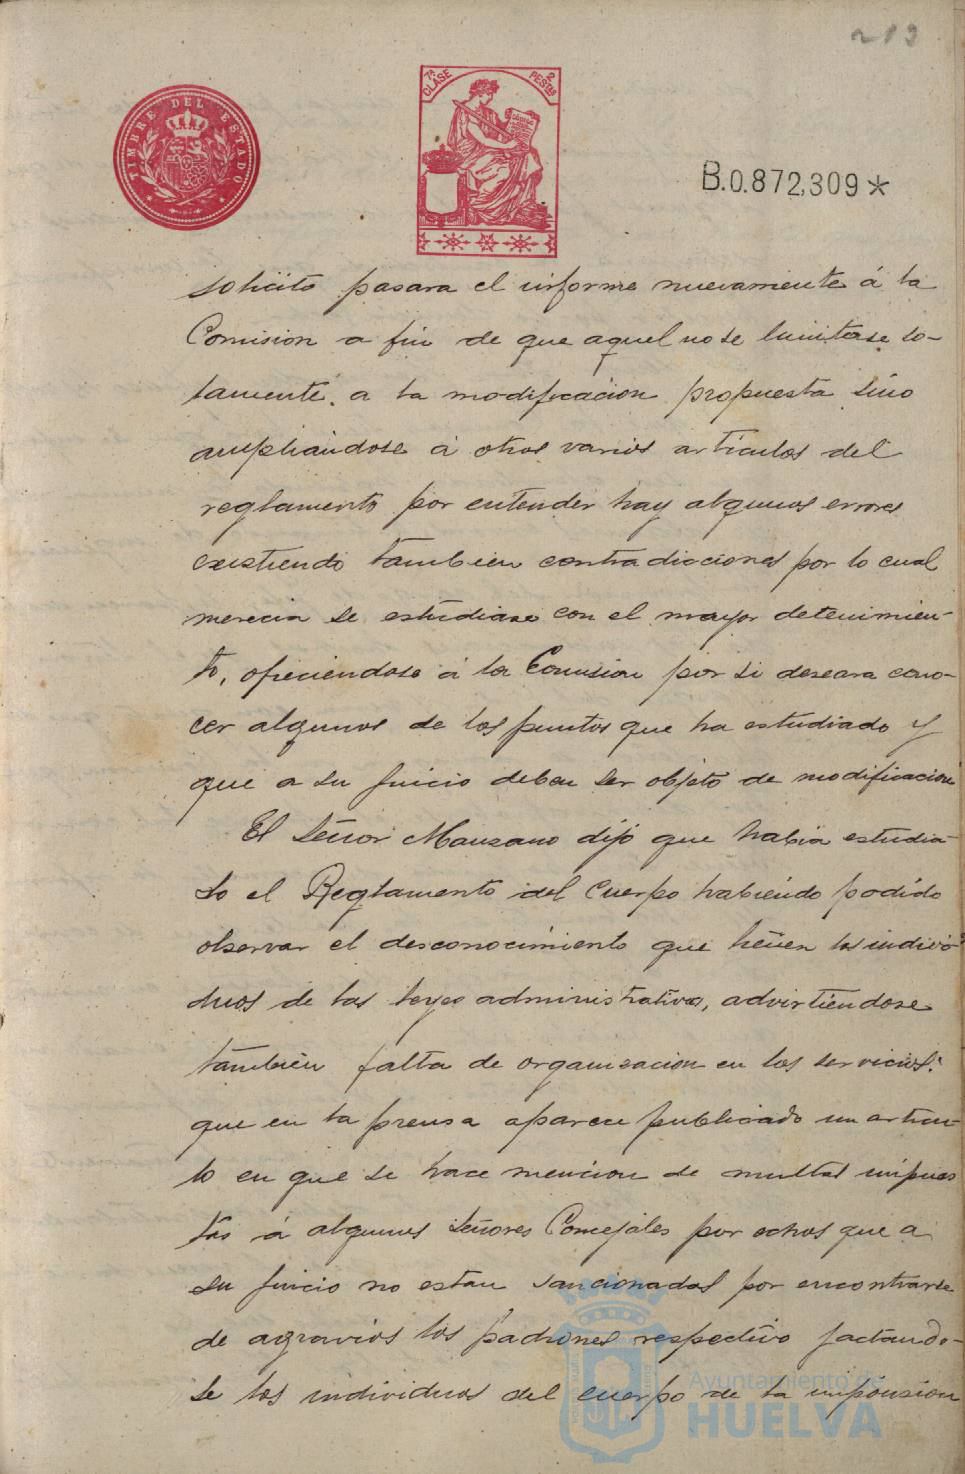 213
TIMBRE DEL ESTADO
7ª CLASE
2 PESETAS
B.0.872,309*
solicito pasara el informe nuevamente á la
Comision a fin de que aquel no se limitase so-
lamente a la modificacion propuesta sino
ampliandose á otros varios articulos del
reglamento por entender hay algunos errores
existiendo tambien contradicciones por lo cual
merecia se estudiase con el mayor detenimien-
to, ofreciendose á la Comision por si deseara cono-
cer algunos de los puntos que ha estudiado y
que a su juicio deben ser objeto de modificacion
El Señor Manzano dijo que habia estudia-
do el Reglamento del Cuerpo habiendo podido
observar el desconocimiento que tienen los indivi-
duos de las leyes administrativas, advirtiendose
tambien falta de organizacion en los servicios:
que en la prensa aparece publicado un articu-
lo en que se hace mencion de multas impues
tas á algunos Señores Concejales por echos que a
su juicio no estan sancionados por encontrarse
de agravios los padrones respectivo jactando-
se los individuos del cuerpo de la imposicion
Ayuntamiento de
HUELVA